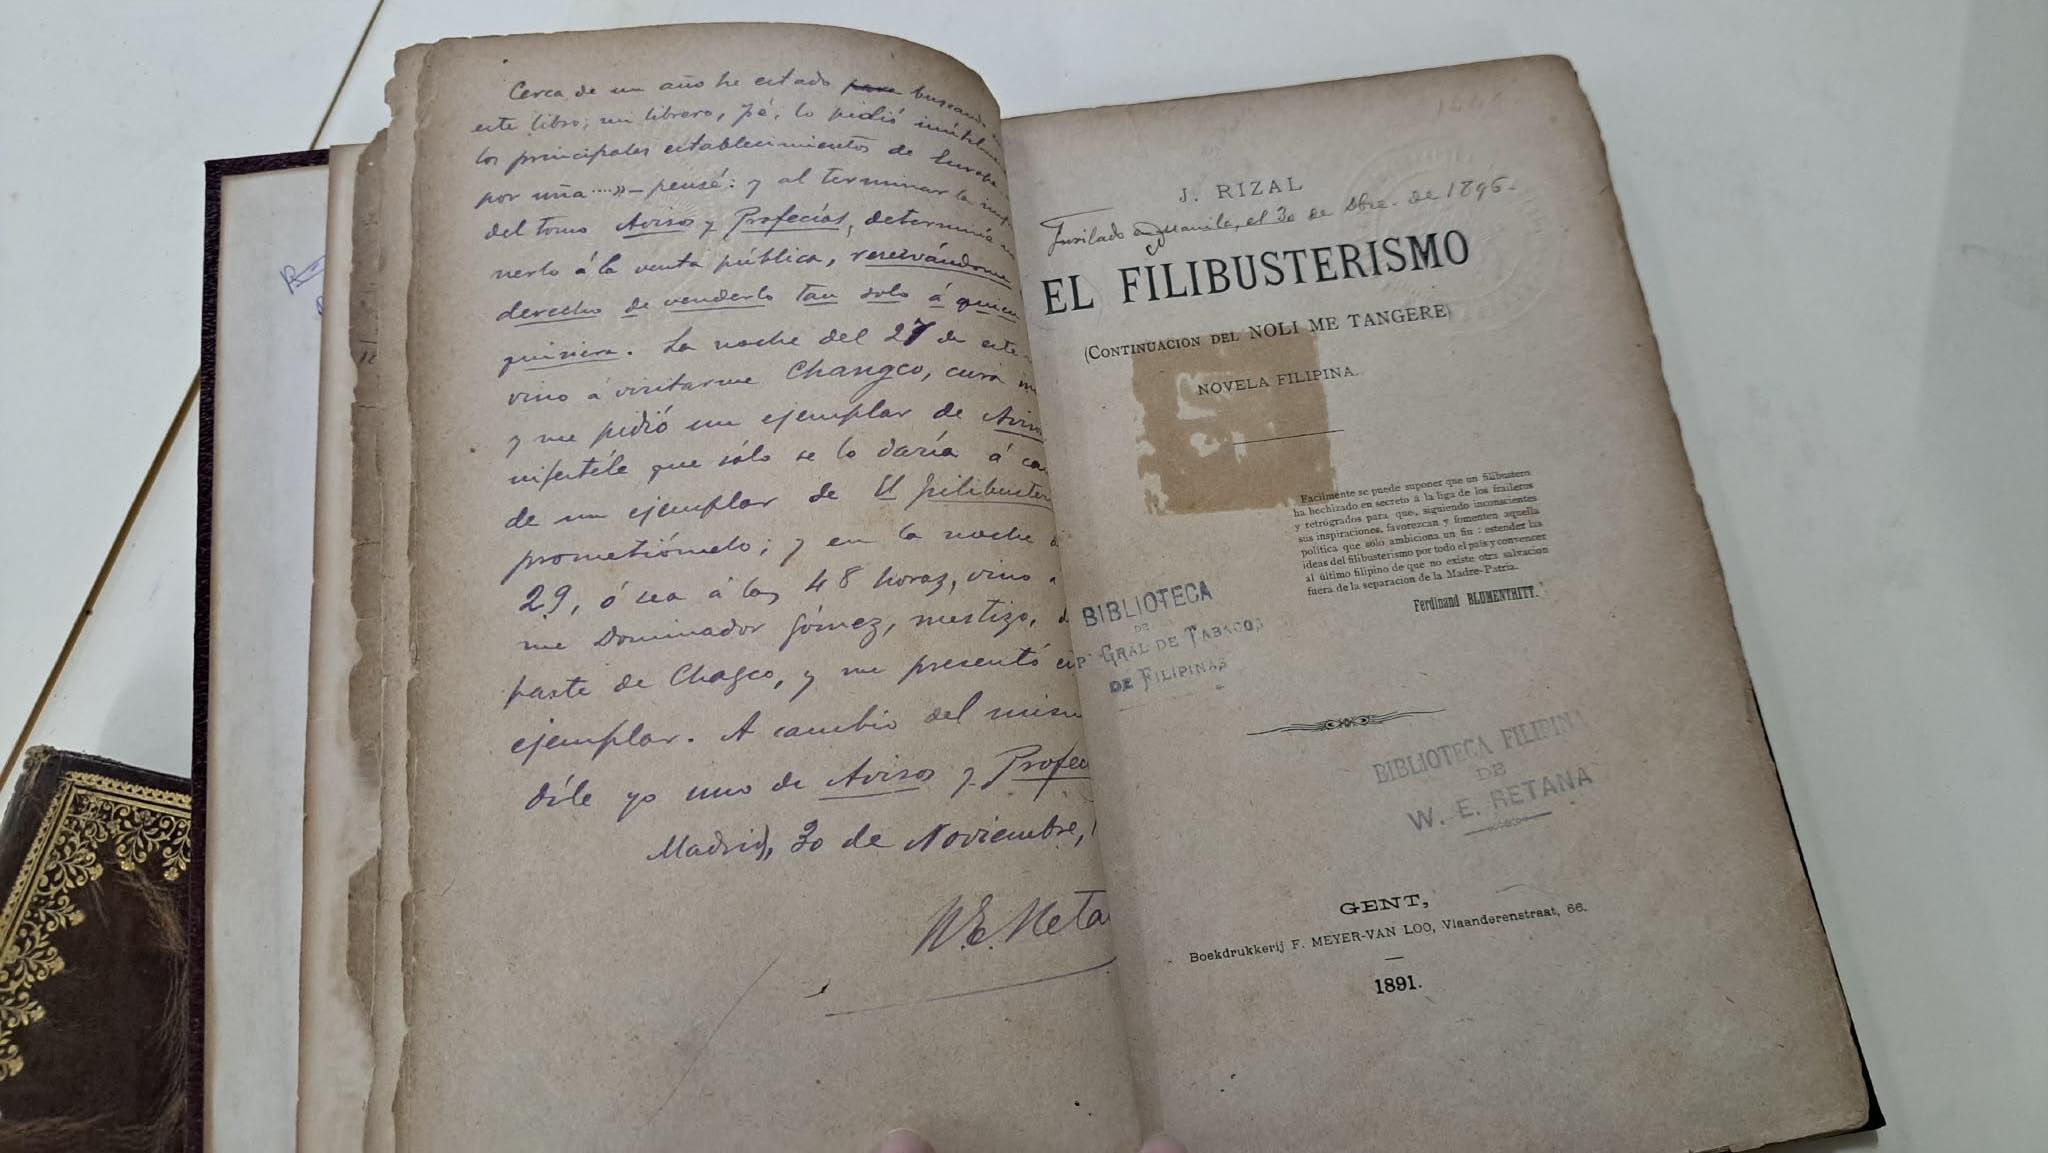 Cerca de un año he estado para buscando
este libro; mi librero, Fé, lo pidió
los principales establecimientos de Europa
por uña....»— pensé: y al terminar la
del tomo Avisos y Profecías, determiné
nerlo á la venta pública, reservándome
derecho de venderlo tan solo á quien
quisiera. La noche del 27 de este
vino á visitarme Changco, cura
y me pidió un ejemplar de Aviso
nifestéle que sólo se lo daría á ca
de un ejemplar de El filibuster
prometiómelo; y en la noche
29, ó sea á las 48 horas, vino
me Dominador Gómez, mestizo, d
parte de Chagco, y me presentó
ejemplar. A cambio del mism
díle yo uno de Avisos y Profec
Madrid, 30 de Noviembre,
W. E. Reta
J. RIZAL
Fusilado en Manila, el 30 de Dbre. de 1896.
EL FILIBUSTERISMO
(CONTINUACION DEL NOLI ME TANGERE)
NOVELA FILIPINA
Facilmente se puede suponer que un filibustero
ha hechizado en secreto á la liga de los fraileros
y retrógrados para que, siguiendo inconscientes
sus inspiraciones, favorezcan y fomenten aquella
política que sólo ambiciona un fin: estender las
ideas del filibusterismo por todo el país y convencer
al último filipino de que no existe otra salvacion
fuera de la separacion de la Madre-Patria.
Ferdinand BLUMENTRITT.
BIBLIOTECA
DE
GRAL DE TABACOS
DE FILIPINAS
BIBLIOTECA FILIPINA
DE
W. E. RETANA
GENT,
Boekdrukkerij F. MEYER-VAN LOO, Vlaanderenstraat, 66.
1891.